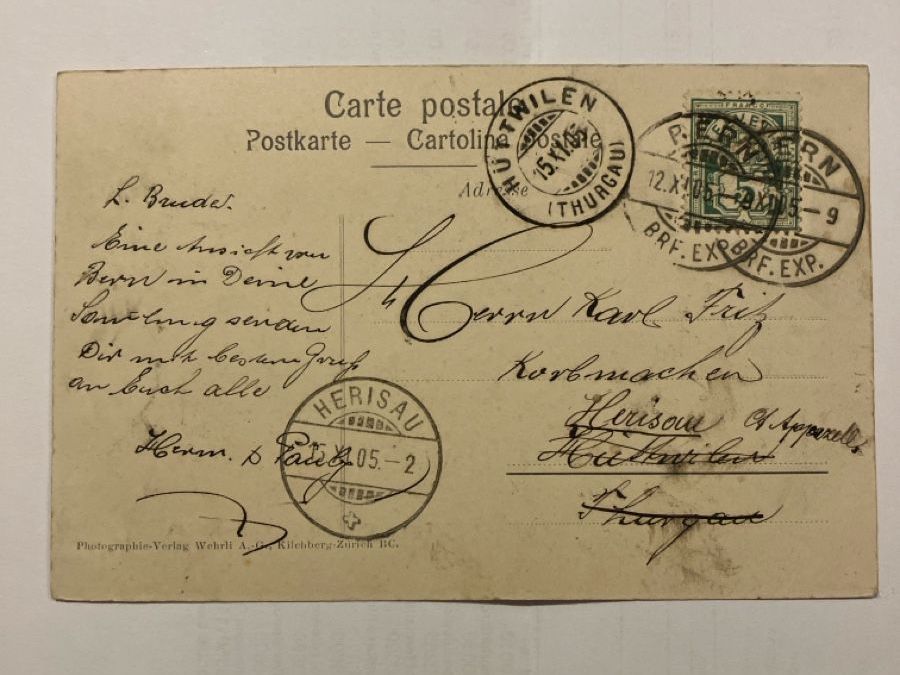 Carte postale
Postkarte — Cartolina postale
Adresse
HÜTTWILEN
15.XI.05
(THURGAU)
FRANCO
BERN
12.XI.05.–
BRF. EXP.
BERN
XI.05.–9
BRF. EXP.
L. Bruder.
Eine Ansicht von
Bern in Deine
Samlung senden
Dir mit besten Gruß
an Euch alle
Herm.
Herrn Karl Fritz
Korbmacher
Herisau Ct Appenzell
Hüttwilen
Thurgau
HERISAU
15.XI.05.–2
Photographie-Verlag Wehrli A.-G., Kilchberg-Zürich BC.